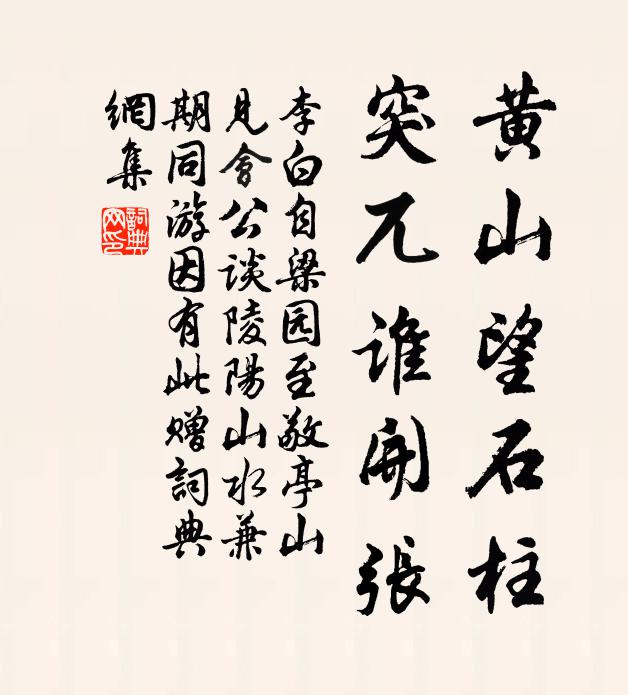 黄山望石柱
突兀谁開張
李白自梁园至敬亭山
見會公谈陵陽山水兼
期同游因有此赠詞典
網集
詞典
网印